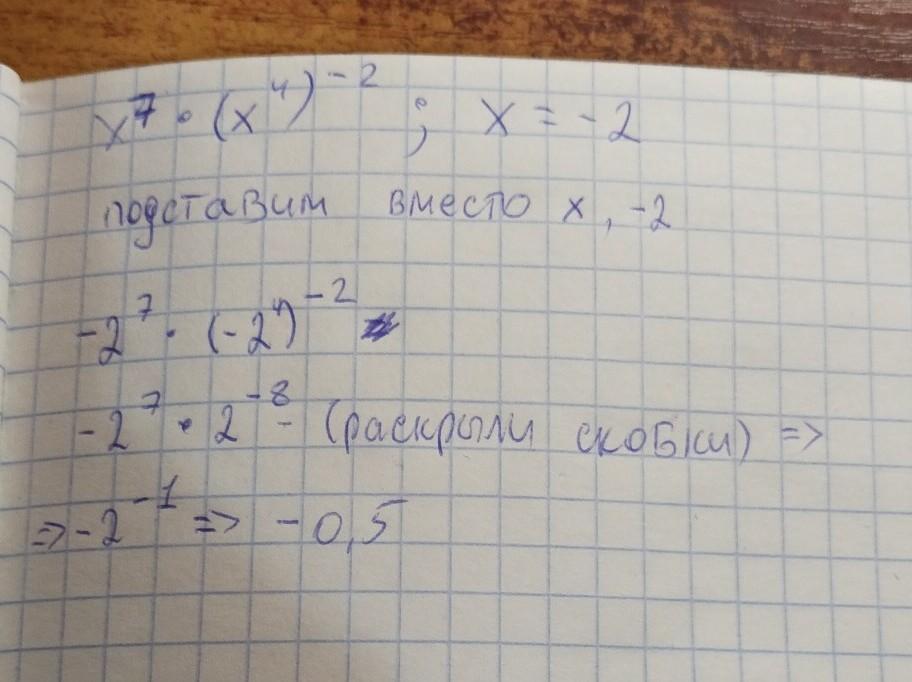 x⁷ · (x⁴)⁻² ; x = -2
подставим вместо x, -2
-2⁷ · (-2⁴)⁻²
-2⁷ · 2⁻⁸ - (раскрыли скобки) =>
=> -2⁻¹ => -0,5